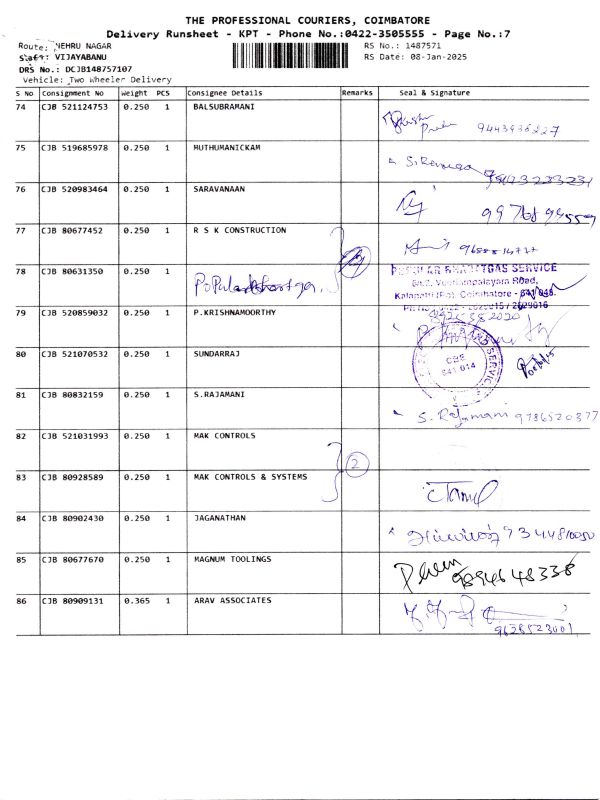 THE PROFESSIONAL COURIERS, COIMBATORE
Delivery Runsheet - KPT - Phone No.:0422-3505555 - Page No.:7
Route: NEHRU NAGAR RS No.: 1487571
Staff: VIJAYABANU RS Date: 08-Jan-2025
DRS No.: DCJB148757107
Vehicle: Two Wheeler Delivery
S No Consignment No Weight PCS Consignee Details Remarks Seal & Signature
74 CJB 521124753 0.250 1 BALSUBRAMANI
75 CJB 519685978 0.250 1 MUTHUMANICKAM
76 CJB 520983464 0.250 1 SARAVANAAN
77 CJB 80677452 0.250 1 R S K CONSTRUCTION
78 CJB 80631350 0.250 1 POPULAR BHARATGAS SERVICE
Kalapatti (Po), Coimbatore - 641 048.
79 CJB 520859032 0.250 1 P.KRISHNAMOORTHY
80 CJB 521070532 0.250 1 SUNDARRAJ CBE 641 014
81 CJB 80832159 0.250 1 S.RAJAMANI S. Rajamani 9786520377
82 CJB 521031993 0.250 1 MAK CONTROLS
2
83 CJB 80928589 0.250 1 MAK CONTROLS & SYSTEMS
84 CJB 80902430 0.250 1 JAGANATHAN
85 CJB 80677670 0.250 1 MAGNUM TOOLINGS 9894648338
86 CJB 80909131 0.365 1 ARAV ASSOCIATES
9628523001